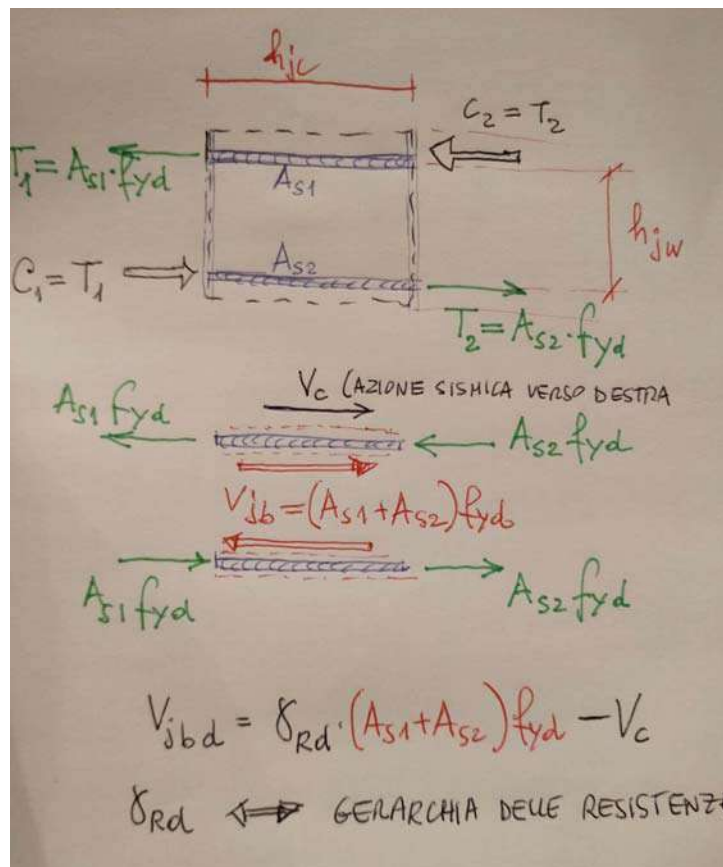 h_jc
C_2 = T_2
T_1 = A_S1 · f_yd
A_S1
h_jw
C_1 = T_1
A_S2
T_2 = A_S2 · f_yd
V_c (AZIONE SISMICA VERSO DESTRA
A_S1 f_yd
A_S2 f_yd
V_jb = (A_S1 + A_S2) f_yd
A_S1 f_yd
A_S2 f_yd
V_jbd = γ_Rd · (A_S1 + A_S2) f_yd − V_c
γ_Rd ⟺ GERARCHIA DELLE RESISTENZ